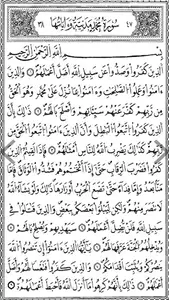 ٤٧ سُورَةُ مُحَمَّدٍ مَدَنِيَّةٌ وَآيَاتُهَا ٣٨
بِسْمِ ٱللَّهِ ٱلرَّحْمَٰنِ ٱلرَّحِيمِ
ٱلَّذِينَ كَفَرُوا۟ وَصَدُّوا۟ عَن سَبِيلِ ٱللَّهِ أَضَلَّ أَعْمَٰلَهُمْ ۝ وَٱلَّذِينَ
ءَامَنُوا۟ وَعَمِلُوا۟ ٱلصَّٰلِحَٰتِ وَءَامَنُوا۟ بِمَا نُزِّلَ عَلَىٰ مُحَمَّدٍ وَهُوَ ٱلْحَقُّ
مِن رَّبِّهِمْ كَفَّرَ عَنْهُمْ سَيِّـَٔاتِهِمْ وَأَصْلَحَ بَالَهُمْ ۝ ذَٰلِكَ بِأَنَّ ٱلَّذِينَ
كَفَرُوا۟ ٱتَّبَعُوا۟ ٱلْبَٰطِلَ وَأَنَّ ٱلَّذِينَ ءَامَنُوا۟ ٱتَّبَعُوا۟ ٱلْحَقَّ مِن
رَّبِّهِمْ كَذَٰلِكَ يَضْرِبُ ٱللَّهُ لِلنَّاسِ أَمْثَٰلَهُمْ ۝ فَإِذَا لَقِيتُمُ ٱلَّذِينَ
كَفَرُوا۟ فَضَرْبَ ٱلرِّقَابِ حَتَّىٰٓ إِذَآ أَثْخَنتُمُوهُمْ فَشُدُّوا۟ ٱلْوَثَاقَ فَإِمَّا
مَنًّۢا بَعْدُ وَإِمَّا فِدَآءً حَتَّىٰ تَضَعَ ٱلْحَرْبُ أَوْزَارَهَا ذَٰلِكَ وَلَوْ يَشَآءُ ٱللَّهُ
لَٱنتَصَرَ مِنْهُمْ وَلَٰكِن لِّيَبْلُوَا۟ بَعْضَكُم بِبَعْضٍ وَٱلَّذِينَ قُتِلُوا۟ فِى
سَبِيلِ ٱللَّهِ فَلَن يُضِلَّ أَعْمَٰلَهُمْ ۝ سَيَهْدِيهِمْ وَيُصْلِحُ بَالَهُمْ ۝
وَيُدْخِلُهُمُ ٱلْجَنَّةَ عَرَّفَهَا لَهُمْ ۝ يَٰٓأَيُّهَا ٱلَّذِينَ ءَامَنُوٓا۟ إِن تَنصُرُوا۟ ٱللَّهَ
يَنصُرْكُمْ وَيُثَبِّتْ أَقْدَامَكُمْ ۝ وَٱلَّذِينَ كَفَرُوا۟ فَتَعْسًا لَّهُمْ وَأَضَلَّ
أَعْمَٰلَهُمْ ۝ ذَٰلِكَ بِأَنَّهُمْ كَرِهُوا۟ مَآ أَنزَلَ ٱللَّهُ فَأَحْبَطَ أَعْمَٰلَهُمْ ۝